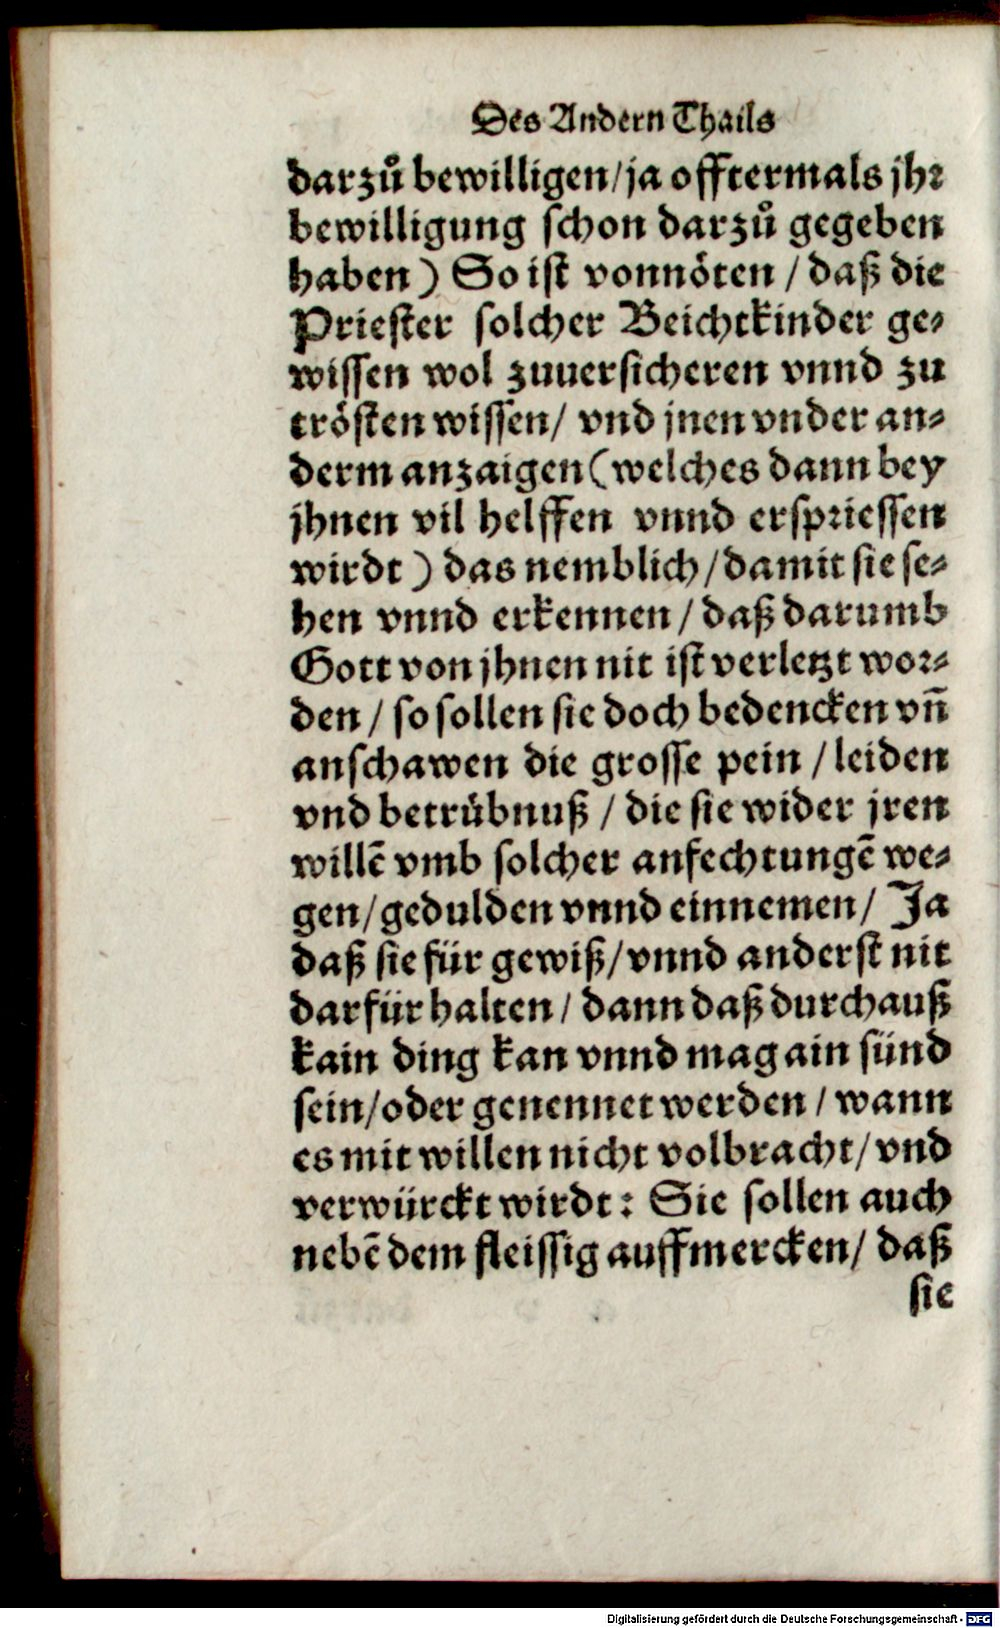 Des Andern Thails
darzů bewilligen/ja offtermals jhr
bewilligung schon darzů gegeben
haben) So ist vonnöten / daß die
Priester solcher Beichtkinder ge-
wissen wol zuuersicheren vnnd zu
trösten wissen/ vnd jnen vnder an-
derm anzaigen (welches dann bey
jhnen vil helffen vnnd erspriessen
wirdt) das nemblich/damit sie se-
hen vnnd erkennen / daß darumb
Gott von jhnen nit ist verletzt wor-
den / so sollen sie doch bedencken vñ
anschawen die grosse pein / leiden
vnd betrübnuß / die sie wider jren
willẽ vmb solcher anfechtungẽ we-
gen/gedulden vnnd einnemen/ Ja
daß sie für gewiß/vnnd anderst nit
darfür halten/ dann daß durchauß
kain ding kan vnnd mag ain sünd
sein/oder genennet werden / wann
es mit willen nicht volbracht/ vnd
verwürckt wirdt: Sie sollen auch
nebẽ dem fleissig auffmercken/ daß
sie
Digitalisierung gefördert durch die Deutsche Forschungsgemeinschaft - DFG